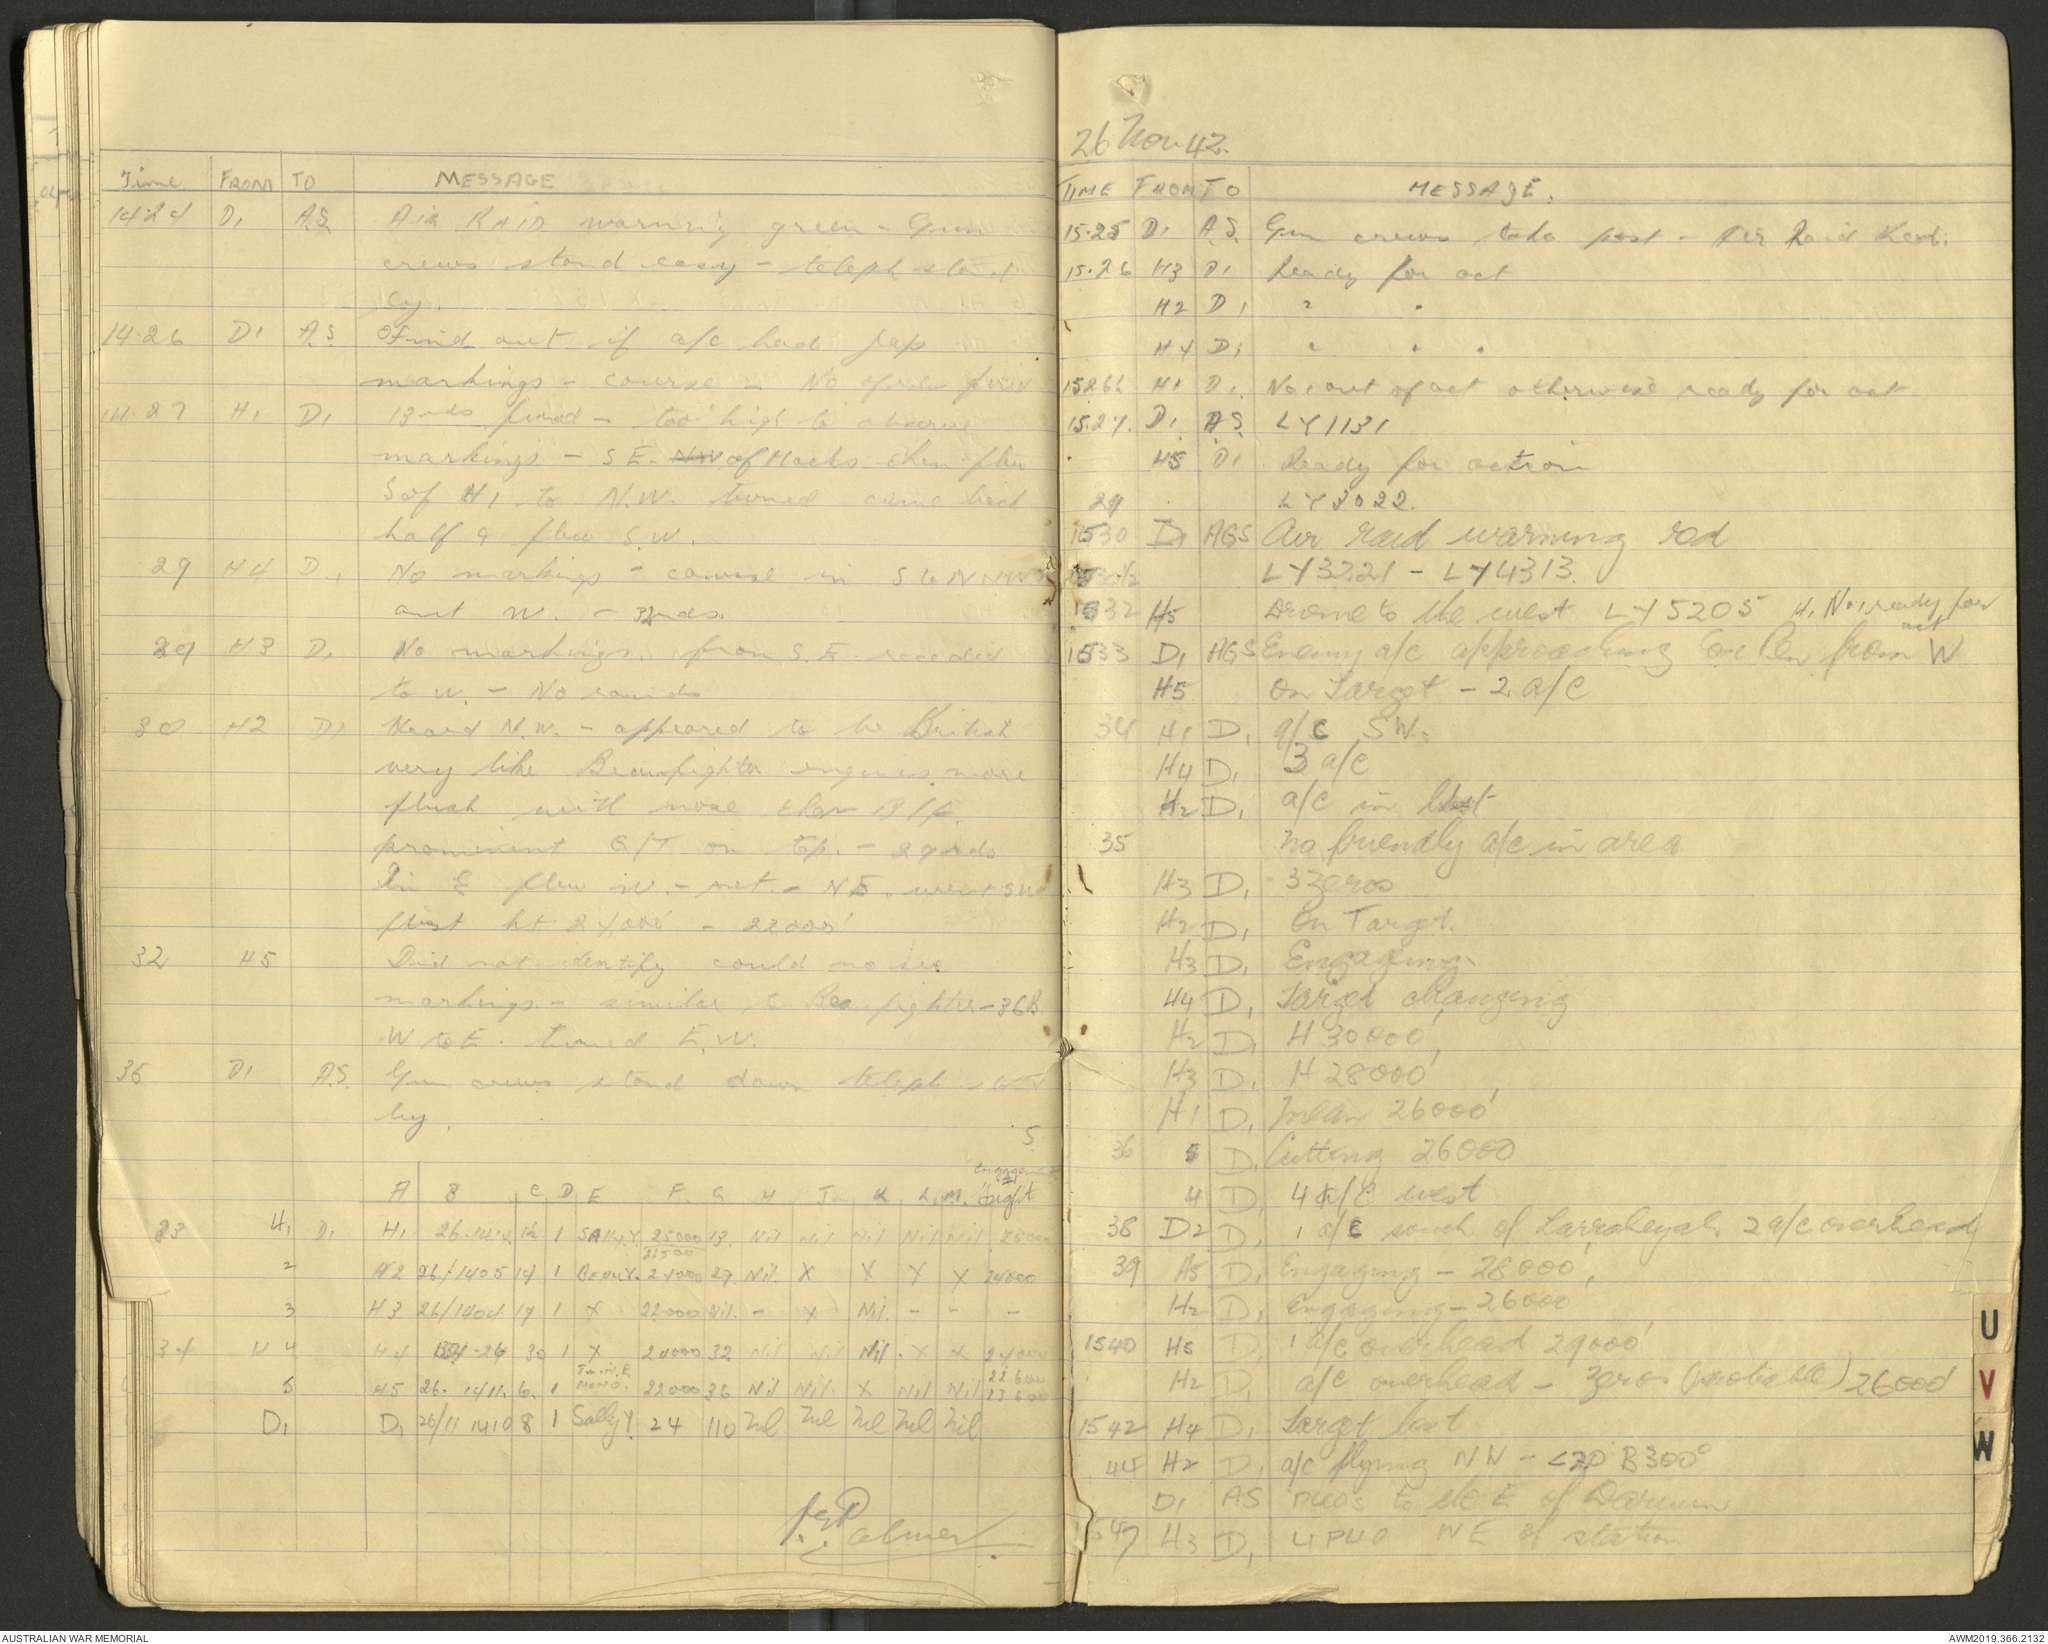 Time FROM TO MESSAGE
14.24 D1 A.S. Air RAID warning green - Gun
crews stand easy - teleph stand
by.
14.26 D1 A.S. Find out if a/c had Jap
markings - course - No of rds fired
14.27 H1 D1 13 rds fired - too high to observe
markings - S.E. of Hacks then flew
S of H1 to N.W. turned came back
half & flew S.W.
29 H4 D1 No markings - course in S to NNW
out W. - 32 rds.
29 H3 D1 No markings. from S.E receded
to W. - No rounds
30 H2 D1 Heard N.W. - appeared to be British
very like Beaufighter engines more
flush with nose than B/F.
prominent G/T on top. - 29 rds
In E flew W. - out - N.E. went SW
first ht 24,000' - 22000'
32 H5 Did not identify could no see
markings - similar to Beaufighter - 36R
W to E. turned E.W.
35 D1 A.S. Gun crews stand down teleph stand
by.
5
A B C D E F G H J K L M. Engaged ht
33 H1 D1 H1 26.1414 12 1 SALLY 25000 13. Nil Nil Nil Nil Nil 25000
23500
2 H2 26/1405 14 1 24000 29 Nil. X X X X 24000
3 H3 26/1404 17 1 X 22000 Nil. - X Nil. - - -
34 H4 H4 30 1 X 24000 32 Nil Nil Nil. X X
5 H5 26. 1411. 6. 1 Twin E MONO. 22000 36 Nil Nil. X Nil Nil 22600 23600
D1 D1 26/11 1410 8 1 Sally 24 110 Nil Nil Nil Nil Nil
J.E. Palmer
26 Nov 42.
TIME FROM TO MESSAGE.
15.25 D1 A.S. Gun crews take post - Air Raid
15.26 H3 D1 Ready for act
H2 D1 " "
H4 D1 " " "
1526½ H1 D1 No 1 out of act otherwise ready for act
15.27. D1 A.S. LY1131
H5 D1 Ready for action
29 LY3022.
1530 D1 AGS Air raid warning red
1530½ LY3221 - LY4313.
1532 H5 Drome to the west LY5205 H1 No 1 ready for
act
1533 D1 AGS Enemy a/c approaching from W
H5 On Target - 2 a/c
34 H1 D1 a/c SW.
H4 D1 3 a/c
H2 D1 a/c in West
35 no friendly a/c in area
H3 D1 3 zeros
H2 D1 On Target.
H3 D1 Engaging
H4 D1 Target changing
H2 D1 H 30000'
H3 D1 H 28000'
H1 D1 26000'
36 5 D1 Cutting 26000
4 D1 4 a/c west
38 D2 D1 1 a/c south of Larrakeyah. 2 a/c overhead
39 H5 D1 Engaging - 28000'
H2 D1 Engaging - 26000'
1540 H5 D1 1 a/c overhead 29000'
H2 D1 a/c overhead - Zeros (probable) 26000
1542 H4 D1 Target lost
44 H2 D1 a/c flying NW - <20 B300°
D1 AS PUOs to the E of Darwin
1547 H3 D1 4 PUO NE of station
U
V
W
AUSTRALIAN WAR MEMORIAL
AWM2019.366.2132